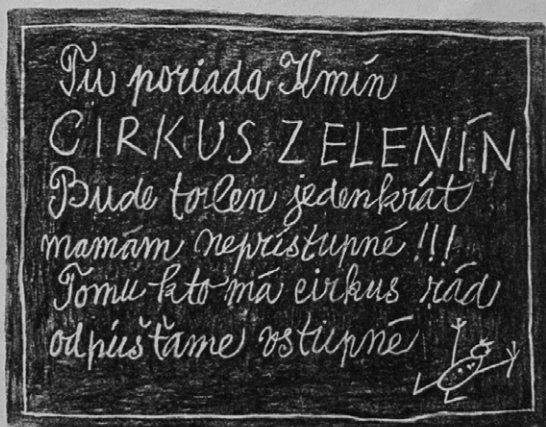 Tu poriada Kmín
CIRKUS ZELENÍN
Bude to len jedenkrát
mamám neprístupné!!!
Tomu kto má cirkus rád
odpúšťame vstupné